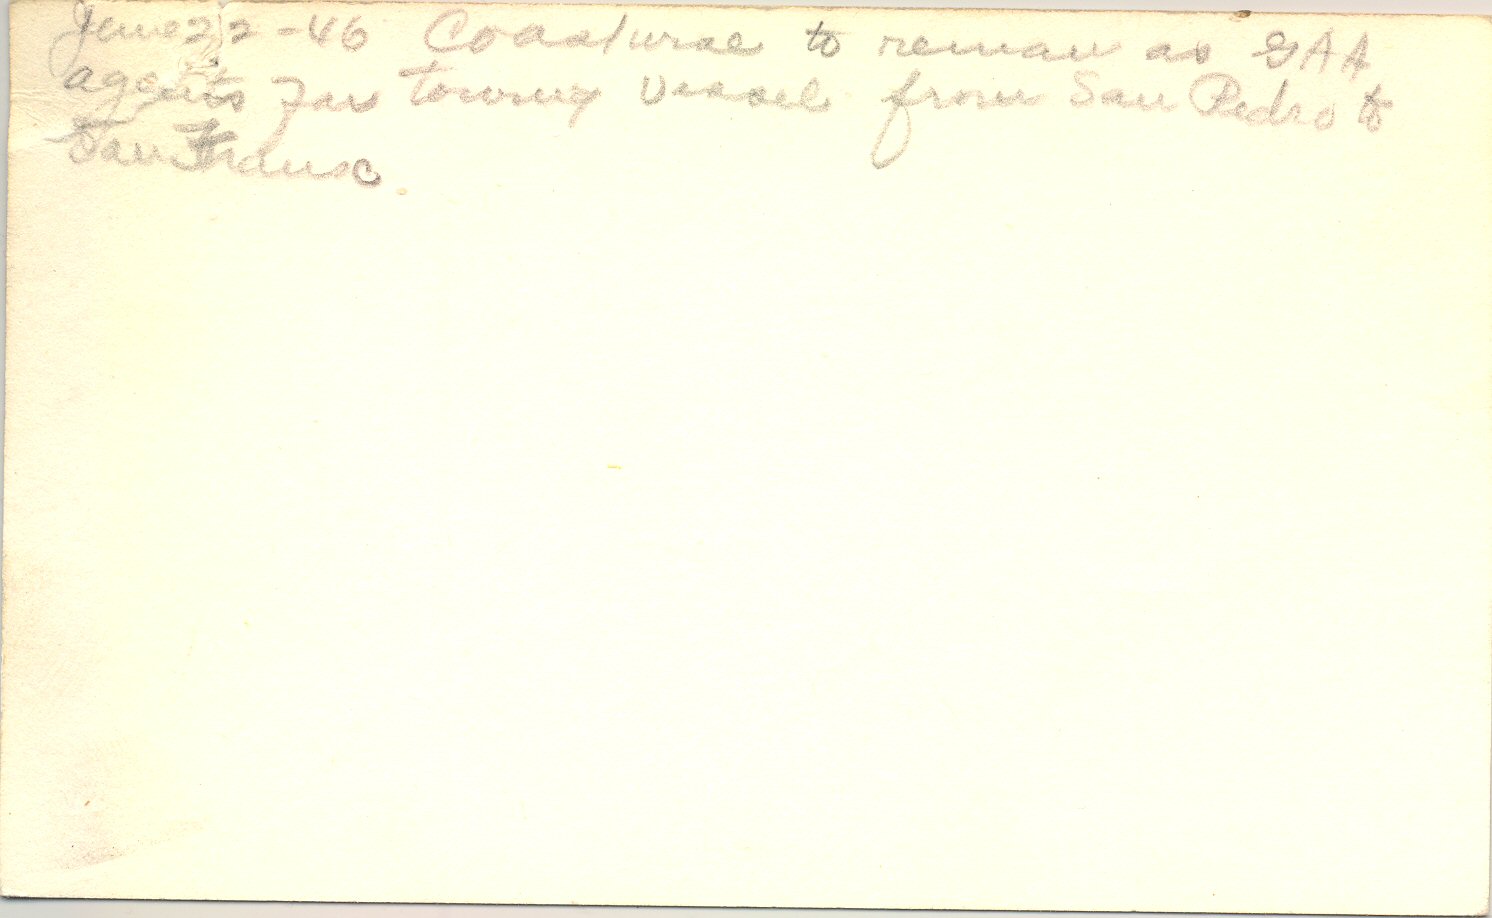 June 22-46 Coastwise to remain as GAA
agents for towing vessel from San Pedro to
San Fransc